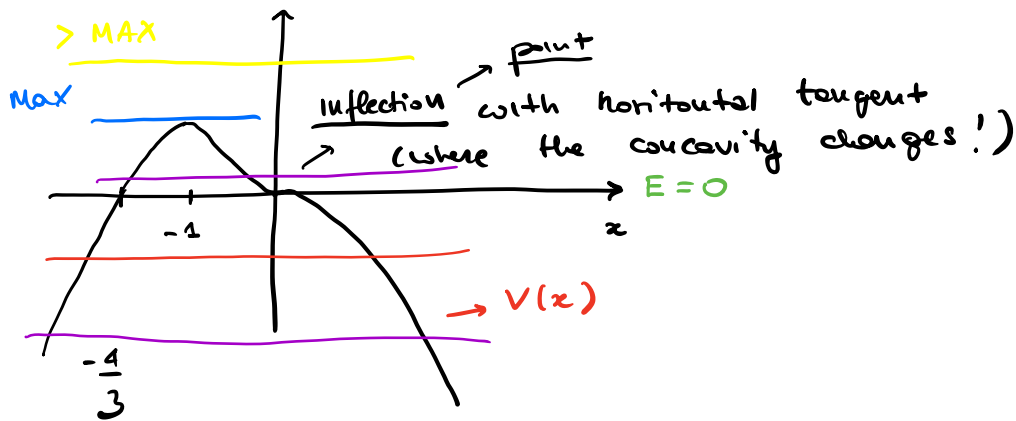 > MAX
point
Max
inflection with horitontal tangent
(where the concavity changes!)
E = 0
-1
x
V(x)
-4/3